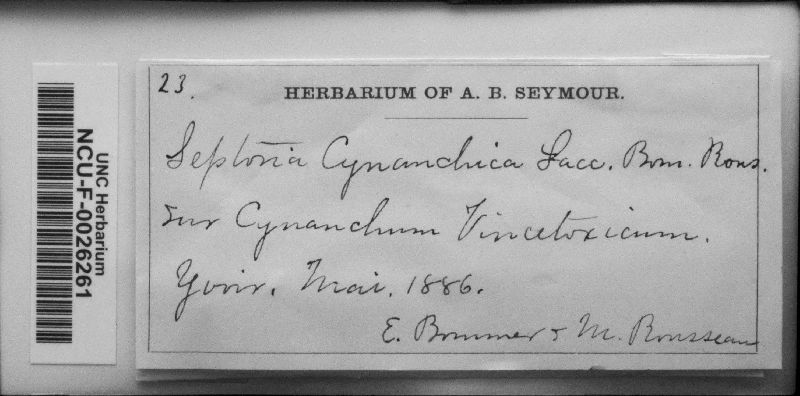 23.
HERBARIUM OF A. B. SEYMOUR.
Septoria Cynanchica Sacc. Bom. Rous.
sur Cynanchum Vincetoxicum.
Yvoir. Mai. 1886.
E. Bommer & M. Rousseau
UNC Herbarium
NCU-F-0026261